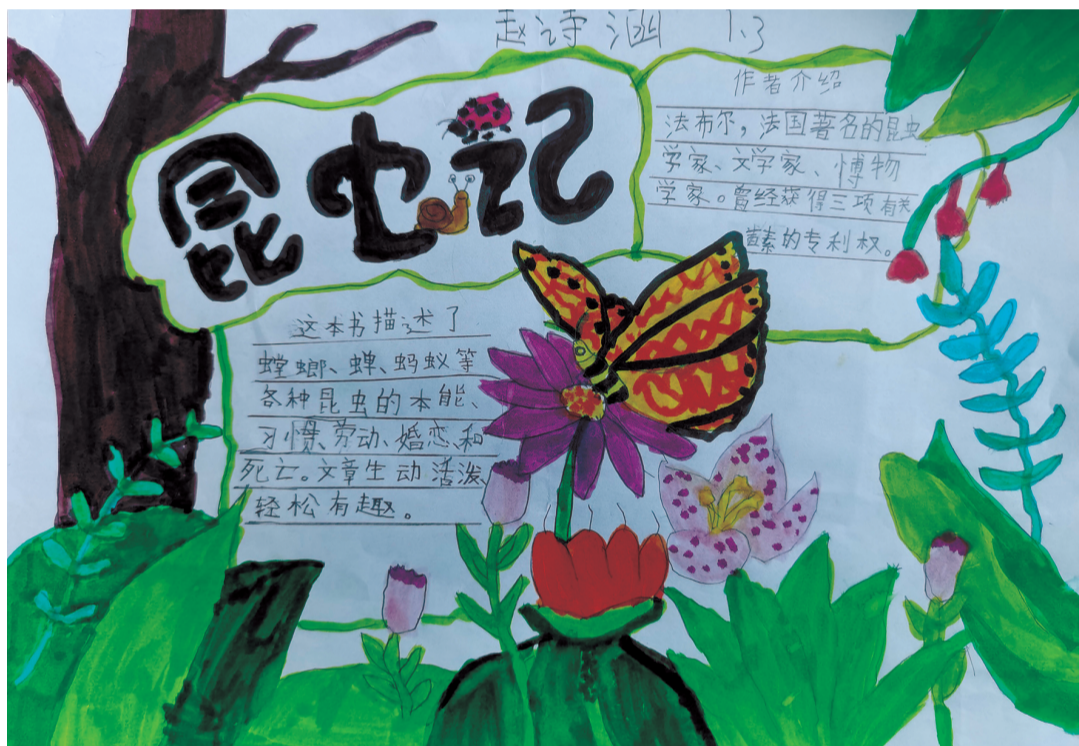 赵诗涵 1.3
昆虫记
作者介绍
法布尔，法国著名的昆虫
学家、文学家、博物
学家。曾经获得三项有关
素的专利权。
这本书描述了
螳螂、蝉、蚂蚁等
各种昆虫的本能、
习惯、劳动、婚恋、和
死亡。文章生动活泼、
轻松有趣。